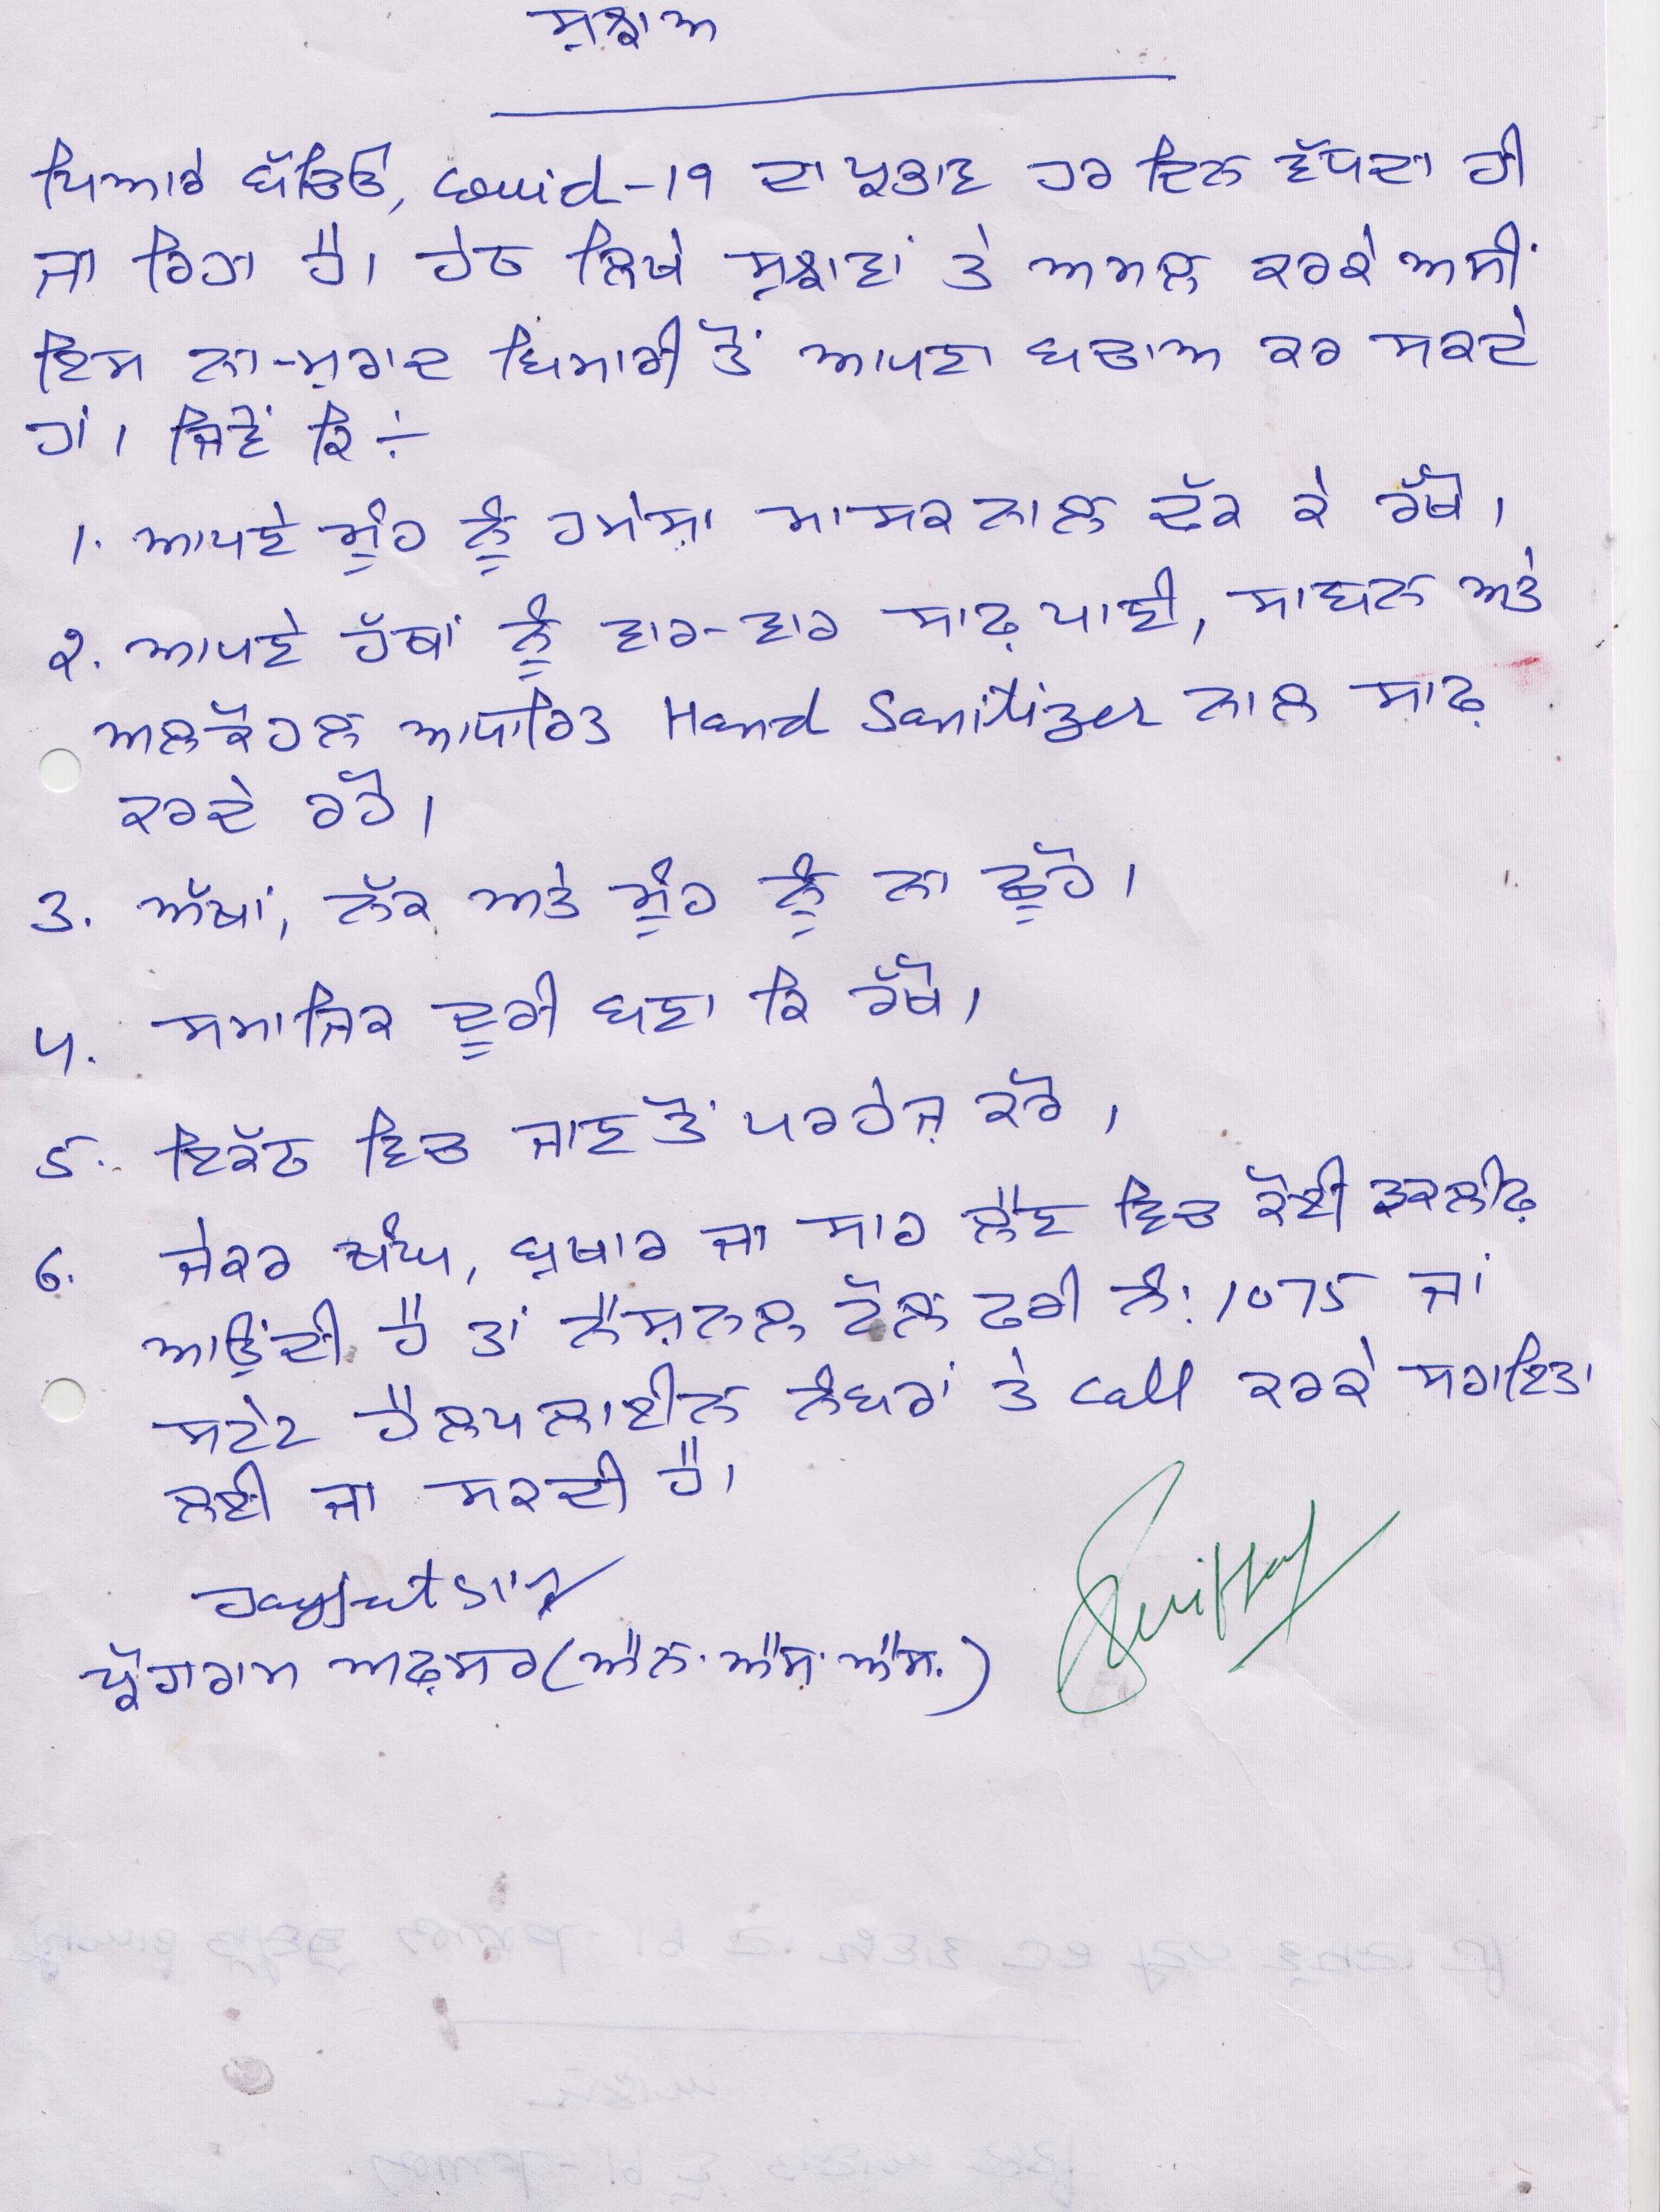 ਸੁਝਾਅ
ਪਿਆਰੇ ਬੱਚਿਓ, Covid-19 ਦਾ ਪ੍ਰਭਾਵ ਹਰ ਦਿਨ ਵੱਧਦਾ ਹੀ
ਜਾ ਰਿਹਾ ਹੈ। ਹੇਠ ਲਿਖੇ ਸੁਝਾਵਾਂ ਤੇ ਅਮਲ ਕਰਕੇ ਅਸੀਂ
ਇਸ ਨਾ-ਮੁਰਾਦ ਬਿਮਾਰੀ ਤੋਂ ਆਪਣਾ ਬਚਾਅ ਕਰ ਸਕਦੇ
ਹਾਂ। ਜਿਵੇਂ ਕਿ :-
1. ਆਪਣੇ ਮੂੰਹ ਨੂੰ ਹਮੇਸ਼ਾ ਮਾਸਕ ਨਾਲ ਢੱਕ ਕੇ ਰੱਖੋ।
੨. ਆਪਣੇ ਹੱਥਾਂ ਨੂੰ ਵਾਰ-ਵਾਰ ਸਾਫ਼ ਪਾਣੀ, ਸਾਬਨ ਅਤੇ
ਅਲਕੋਹਲ ਆਧਾਰਿਤ Hand Sanitizer ਨਾਲ ਸਾਫ਼
ਕਰਦੇ ਰਹੋ।
3. ਅੱਖਾਂ, ਨੱਕ ਅਤੇ ਮੂੰਹ ਨੂੰ ਨਾ ਛੂਹੋ।
4. ਸਮਾਜਿਕ ਦੂਰੀ ਬਣਾ ਕਿ ਰੱਖੋ।
5. ਇਕੱਠ ਵਿਚ ਜਾਣ ਤੋਂ ਪਰਹੇਜ਼ ਕਰੋ।
6. ਜੇਕਰ ਖੰਘ, ਬੁਖਾਰ ਜਾ ਸਾਹ ਲੈਣ ਵਿਚ ਕੋਈ ਤਕਲੀਫ਼
ਆਉਂਦੀ ਹੈ ਤਾਂ ਨੈਸ਼ਨਲ ਟੋਲ ਫਰੀ ਨੰ: 1075 ਜਾਂ
ਸਟੇਟ ਹੈਲਪਲਾਈਨ ਨੰਬਰਾਂ ਤੇ Call ਕਰਕੇ ਸਹਾਇਤਾ
ਲਈ ਜਾ ਸਕਦੀ ਹੈ।
ਪ੍ਰੋਗਰਾਮ ਅਫ਼ਸਰ (ਐਨ. ਐਸ. ਐਸ.)